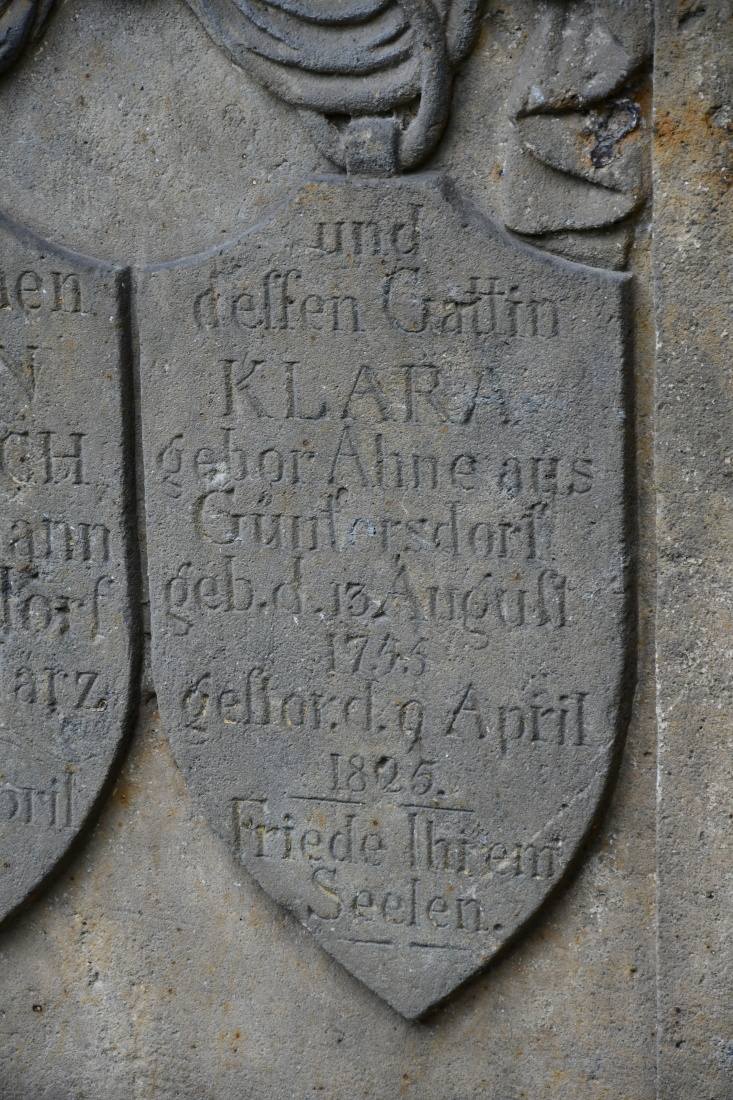 nen
N
CH
ann
dorf
ärz
pril
und
deſſen Gattin
KLARA
gebor Ahne aus
Günſersdorf
geb. d. 13. Auguſt
1745
geſtor. d. 9 April
1825.
Friede Ihrem
Seelen.